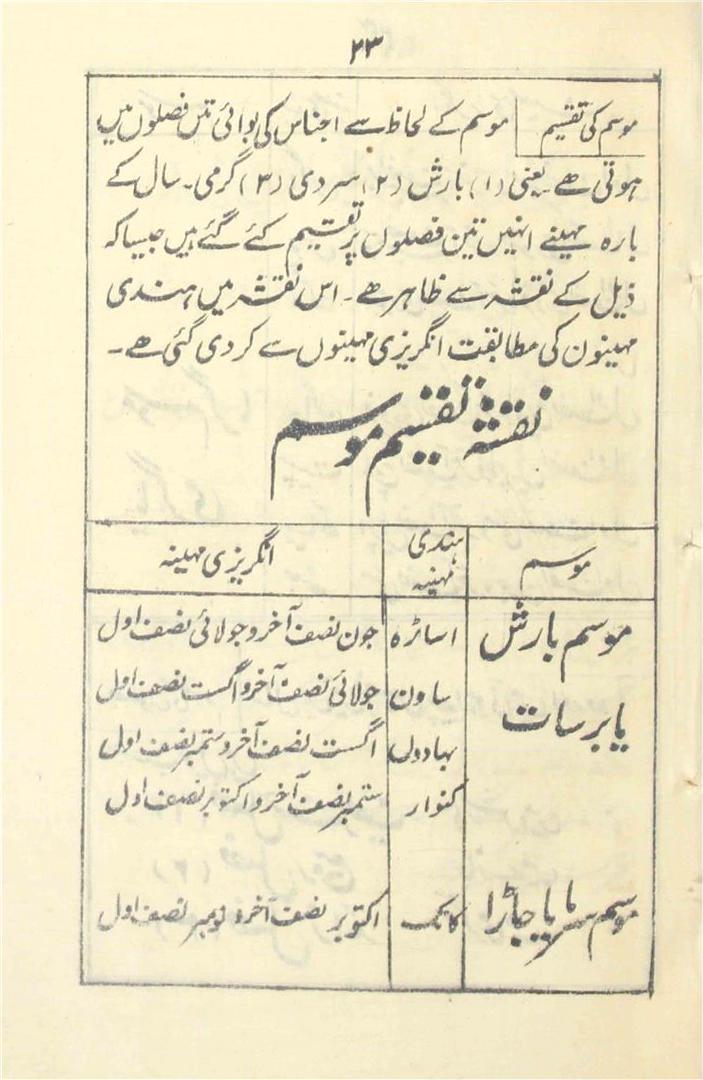 ۲۳
موسم کی تقسیم موسم کے لحاظ سے اجناس کی بوائی تین فصلوں میں
ہوتی ھے۔ یعنی (۱) بارش (۲) سردی (۳) گرمی۔ سال کے
بارہ مہینے انہیں تین فصلوں پر تقسیم کئے گئے ہیں جیسا کہ
ذیل کے نقشہ سے ظاہر ھے۔ اس نقشہ میں ہندی
مہینون کی مطابقت انگریزی مہینوں سے کر دی گئی ھے۔
نقشۂ تقسیم موسم
موسم ہندی مہینہ انگریزی مہینہ
موسم بارش اساڑہ جون نصف آخر و جولائی نصف اول
یا برسات ساون جولائی نصف آخر و اگست نصف اول
بہادوں اگست نصف آخر و ستمبر نصف اول
کنوار ستمبر نصف آخر و اکتوبر نصف اول
موسم سرما یا جاڑا کاتک اکتوبر نصف آخر و نومبر نصف اول